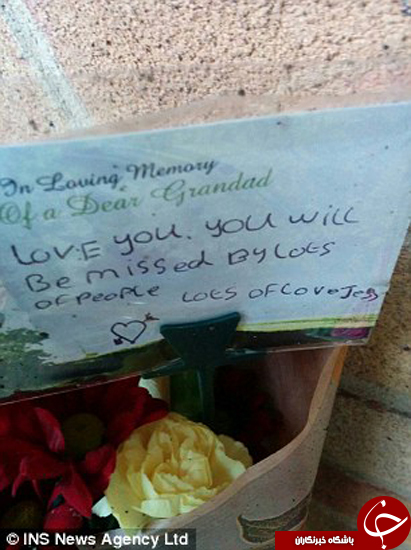 In Loving Memory
Of a Dear Grandad
LOVE YOU. YOU WILL
BE MISSED BY LOTS
OF PEOPLE LOTS OF LOVE Jess
© INS News Agency Ltd
باشگاه خبرنگاران